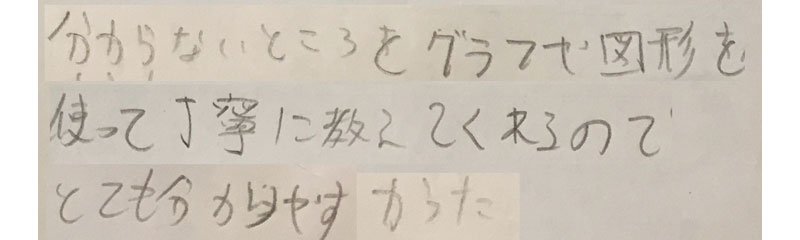 分からないところをグラフや図形を
使って丁寧に教えてくれるので
とても分かりやすかった